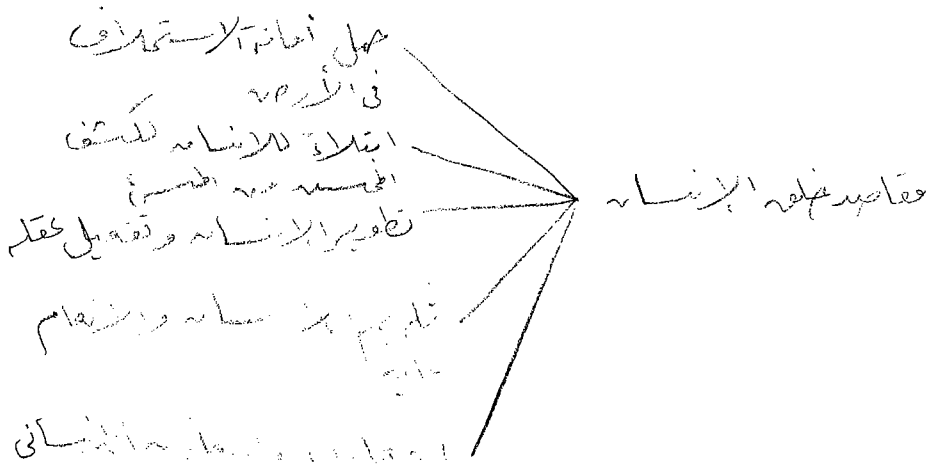 مقاصد خلق الإنسان
حمل أمانة الاستخلاف
في الأرض
ابتلاء للإنسان لكشف
المحسن من المسيء
تطوير الإنسان وتفعيل عقله
تكريم الإنسان والإنعام
عليه
الإنساني